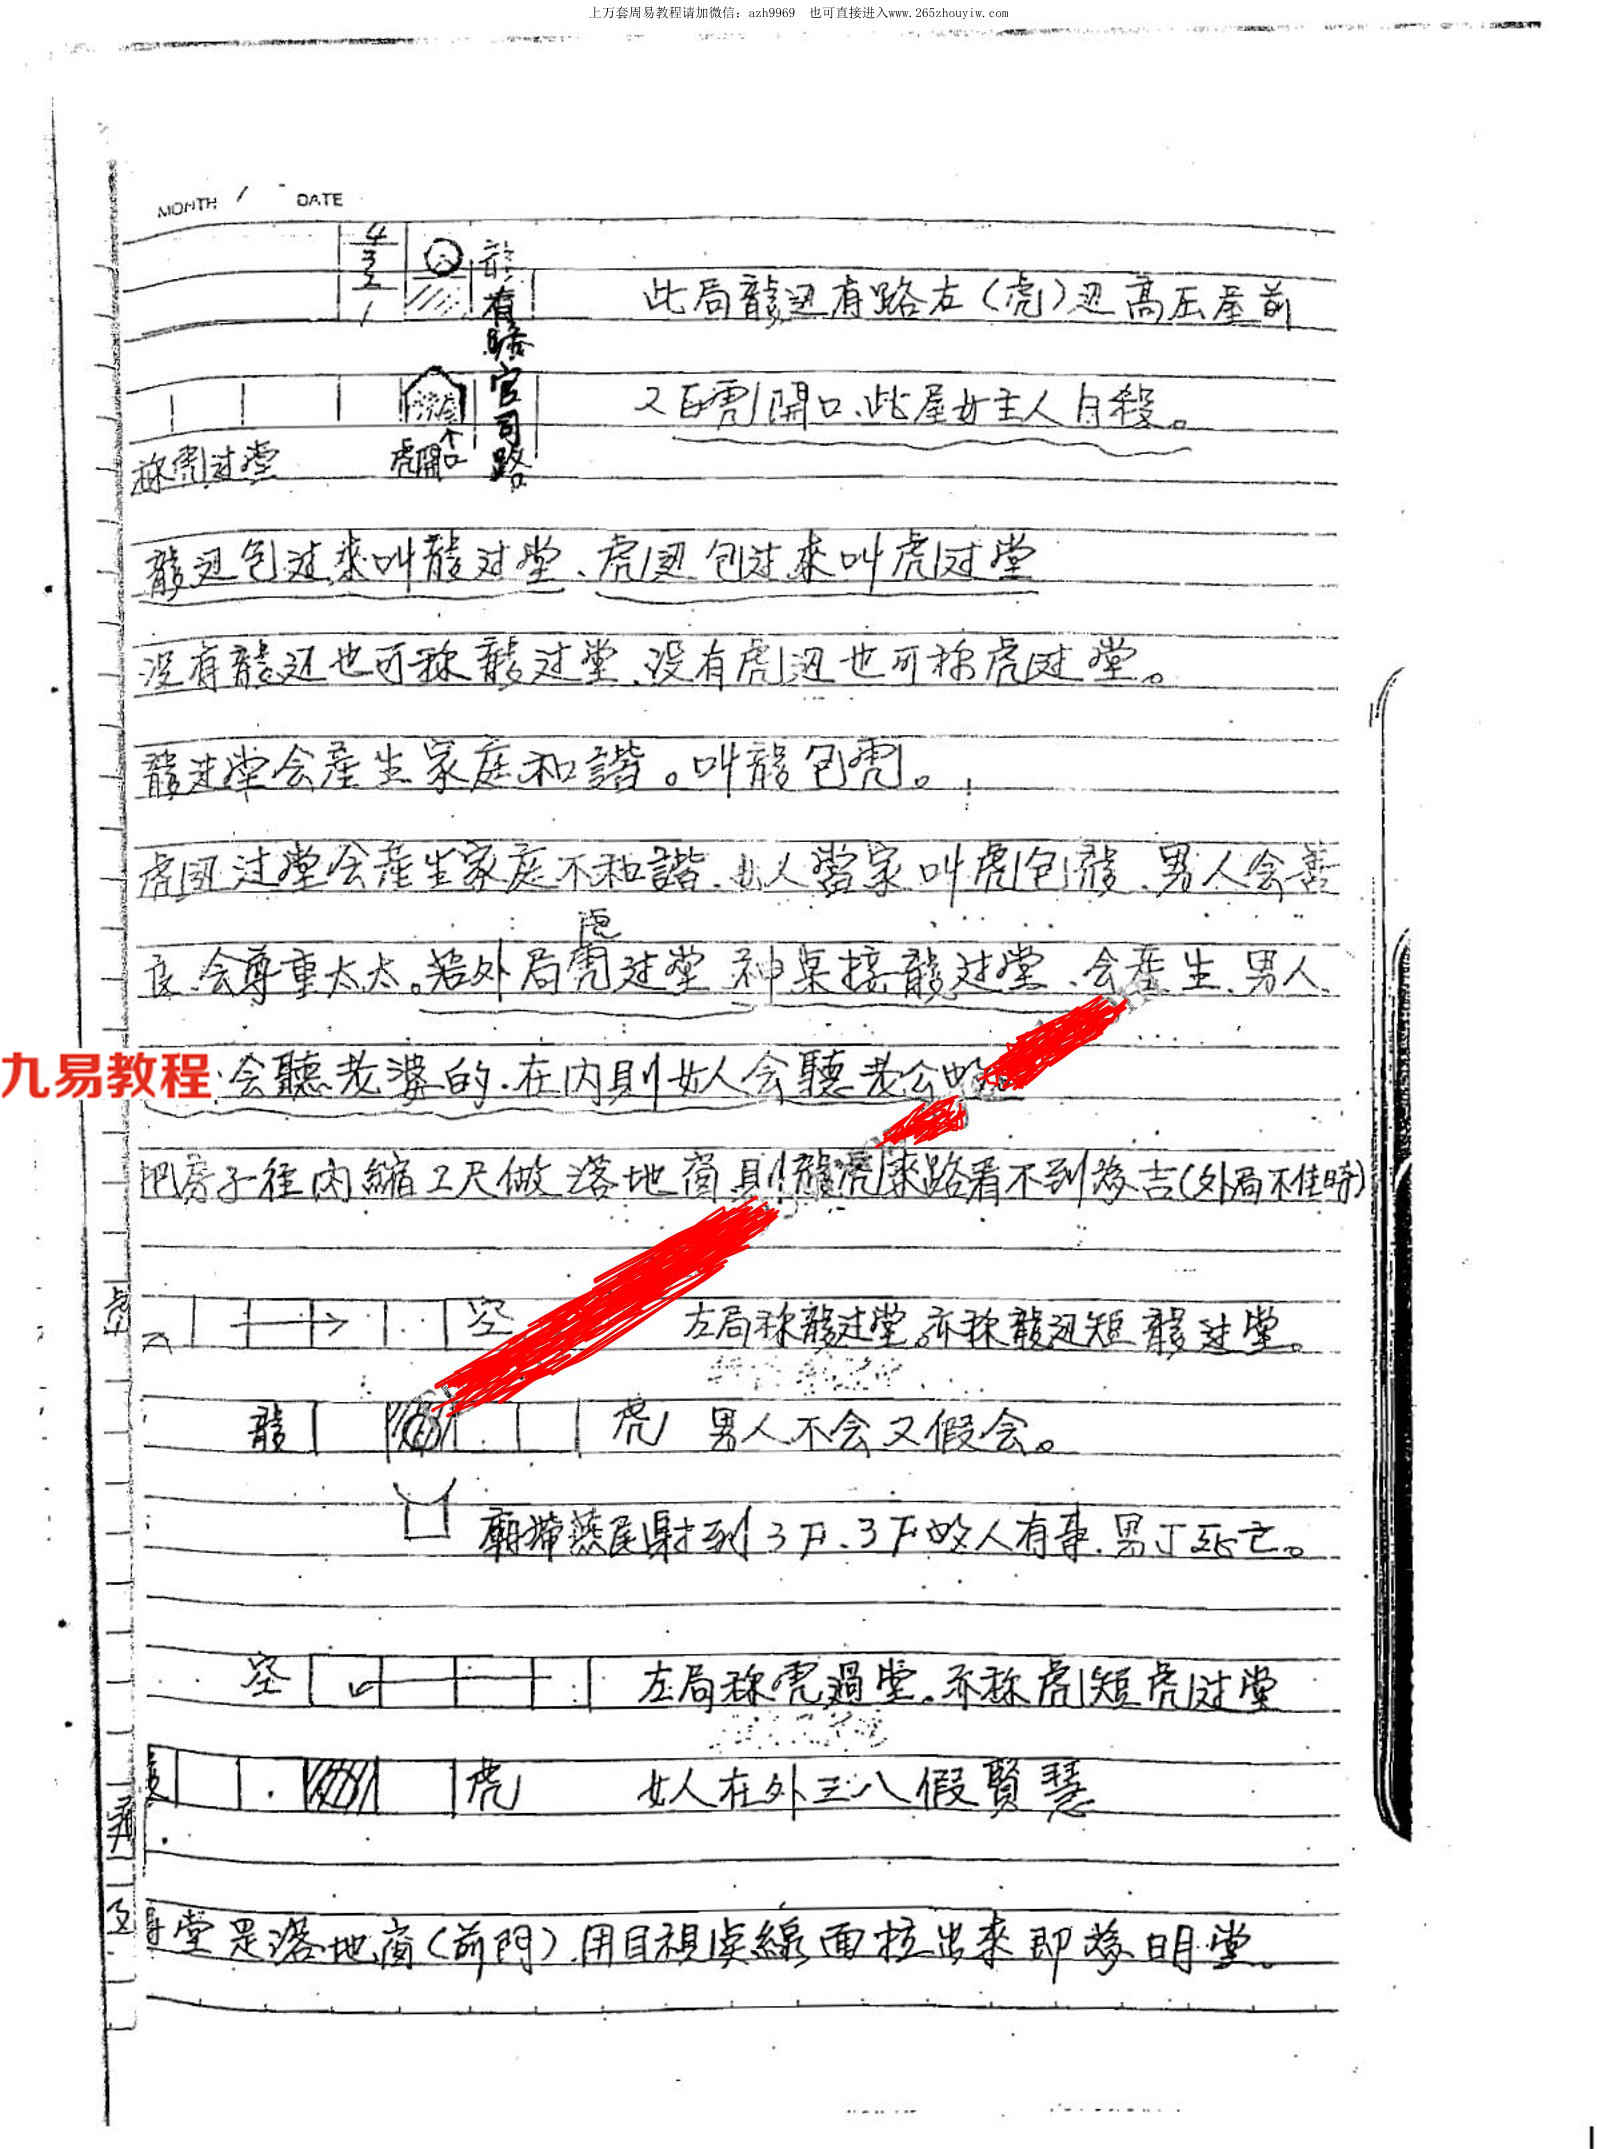 上万套周易教程请加微信：azh9969　也可直接进入www.265zhouyiw.com
MONTH / DATE
4
3
2
1
有路
官司路
此局龍边有路右(虎)边高压屋前
又白虎開口、此屋女主人自殺。
虎開口
称虎过堂
龍边包过來叫龍过堂、虎边包过來叫虎过堂
没有龍边也可称龍过堂、没有虎边也可称虎过堂。
龍过堂会產生家庭和諧。叫龍包虎。
虎边过堂会產生家庭不和諧、女人當家叫虎包龍、男人会善
良、会尊重太太。若外局虎过堂 神桌接龍过堂、会產生、男人、
九易教程
会聽老婆的.在内則女人会聽老公的。
把房子往内縮2尺做落地窗則龍虎來路看不到為吉(外局不佳時)
空
左局称龍过堂。亦称龍边短龍过堂。
龍 虎 男人不会又假会。
廟帶燕尾射到3F、3F的人有事.男丁死亡。
空 左局称虎過堂。亦称虎短虎过堂
虎 女人在外三八假賢慧
堂是落地窗(前門).用目視臭線面拉出來即為明堂。